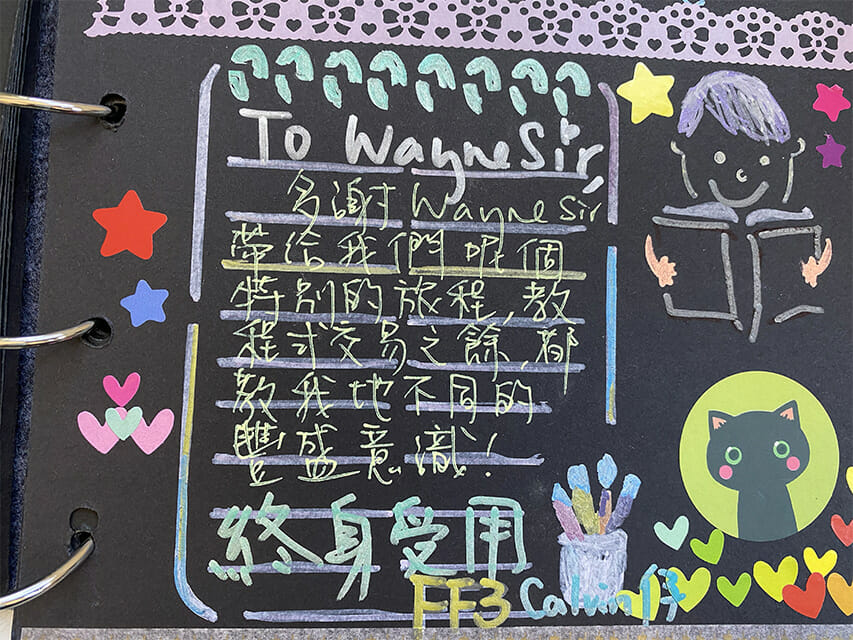 To Wayne Sir,
多謝 Wayne Sir
帶給我們呢個
特別的旅程,教
程式交易之餘,都
教我地不同的
豐盛意識!
終身受用
FF3 Calvin仔